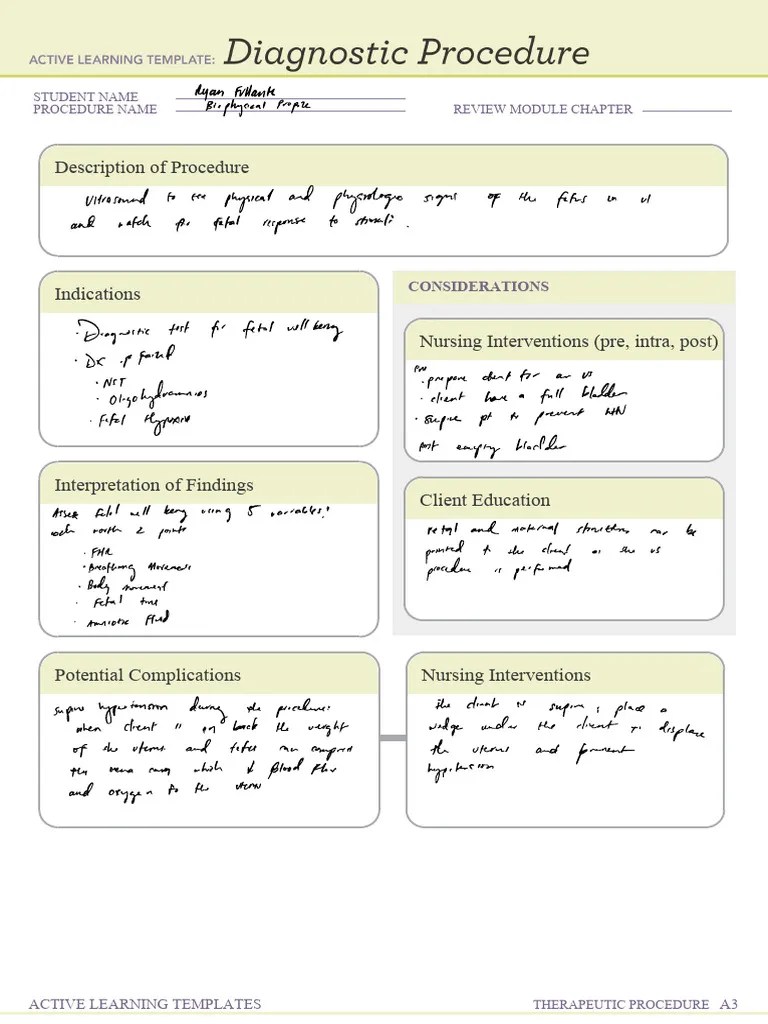 ACTIVE LEARNING TEMPLATE: Diagnostic Procedure
STUDENT NAME Ryan
PROCEDURE NAME Biophysical Profile
REVIEW MODULE CHAPTER
Description of Procedure
Ultrasound to see physical and physiologic signs of the fetus in
and watch for fetal response to stimuli.
Indications
· Diagnostic test for fetal well being
· Dx if Failed
· NST
· Oligohydramnios
· Fetal Hypoxia
CONSIDERATIONS
Nursing Interventions (pre, intra, post)
Pre
· prepare client for an US
· client have a full bladder
· supine pt to prevent
post empty bladder
Interpretation of Findings
Assess fetal well being using 5 variables:
each worth 2 points
· FHR
· Breathing Movements
· Body movement
· Fetal tone
· Amniotic Fluid
Client Education
Fetal and maternal structures may be
pointed to the client as the US
procedure is performed
Potential Complications
supine hypotension during the procedure:
when client is on back the weight
of the uterus and fetus can compress
the vena cava which ↓ Blood flow
and oxygen to the uterus
Nursing Interventions
the client is supine; place a
wedge under the client to displace
the uterus and prevent
hypotension
ACTIVE LEARNING TEMPLATES
THERAPEUTIC PROCEDURE A3